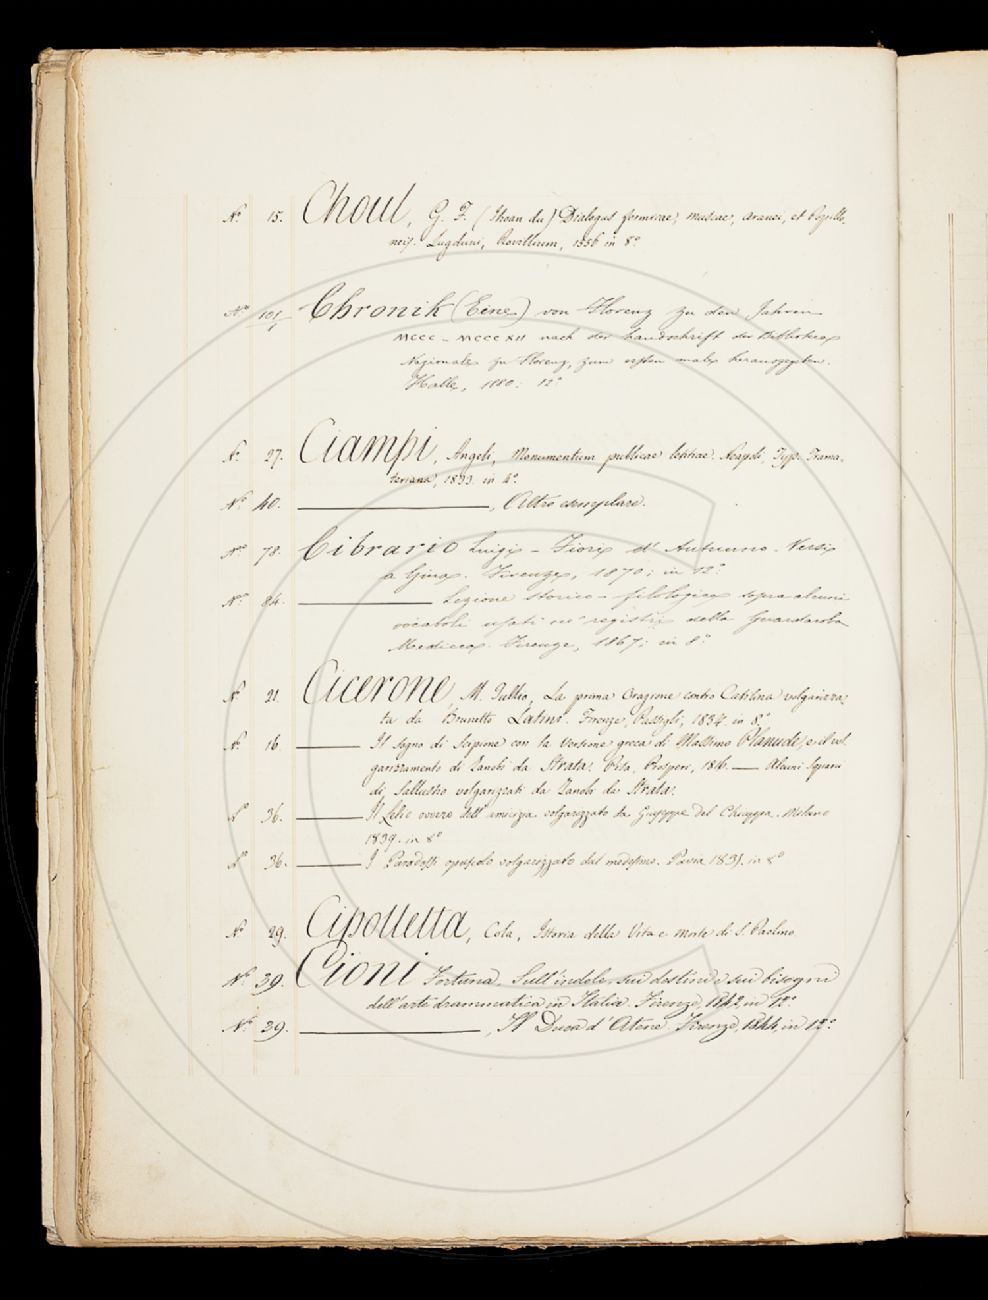 Nº 15. Choul, G. F. (Jhoan du) Dialogus formicae, muscae, aranei, et Papilio-
neis. Lugduni, Rovillium, 1556 in 8º
Nº 101/1 Chronik (Eine) von Florenz zu den Jahren
MCCC – MCCCXII nach der handschrift der Biblioteca
Nazionale zu Florenz, zum ersten male herausgegeben.
Halle, 1880: 12º
Nº 27. Ciampi, Angeli, Monumentum publicae Napoli, Typ. Trama-
teriana, 1833. in 4º.
Nº 40. ——, Altro esemplare.
Nº 78. Cibrario Luigi – Fiori d'Autunno. Versi
a Gina. Firenze, 1870; in 12º.
Nº 84. —— Lezione storico – filologica sopra alcuni
vocaboli usati ne' registri della Guardaroba
Medicea. Firenze, 1867; in 8º.
Nº 21. Cicerone M. Tullio, La prima Orazione contro Catilina volgarizza-
ta da Brunetto Latini. Firenze, Passigli, 1834 in 8º
Nº 16. —— Il sogno di Scipione con la versione greca di Massimo Planude, e il vol-
garizzamento di Zanobi da Strata. Pisa, Prosperi, 1816. — Alcuni Squarci
di Sallustio volgarizzati da Zanobi da Strata.
Nº 36. —— Il Lelio ovvero dell'amicizia volgarizzato da Giuseppe del Chiappa. Milano
1839. in 8º
Nº 36. —— I Paradossi opuscolo volgarizzato dal medesimo. Pavia 1831. in 8º
Nº 29. Cipolletta, Cola, Istoria della Vita e morte di S. Paolino
Nº 39. Cioni Fortuna, Sull'indole, sui destini e sui bisogni
dell'arte drammatica in Italia. Firenze, 1842, in 12º.
Nº 39. ——, Il Duca d'Atene. Firenze, 1844, in 12º.